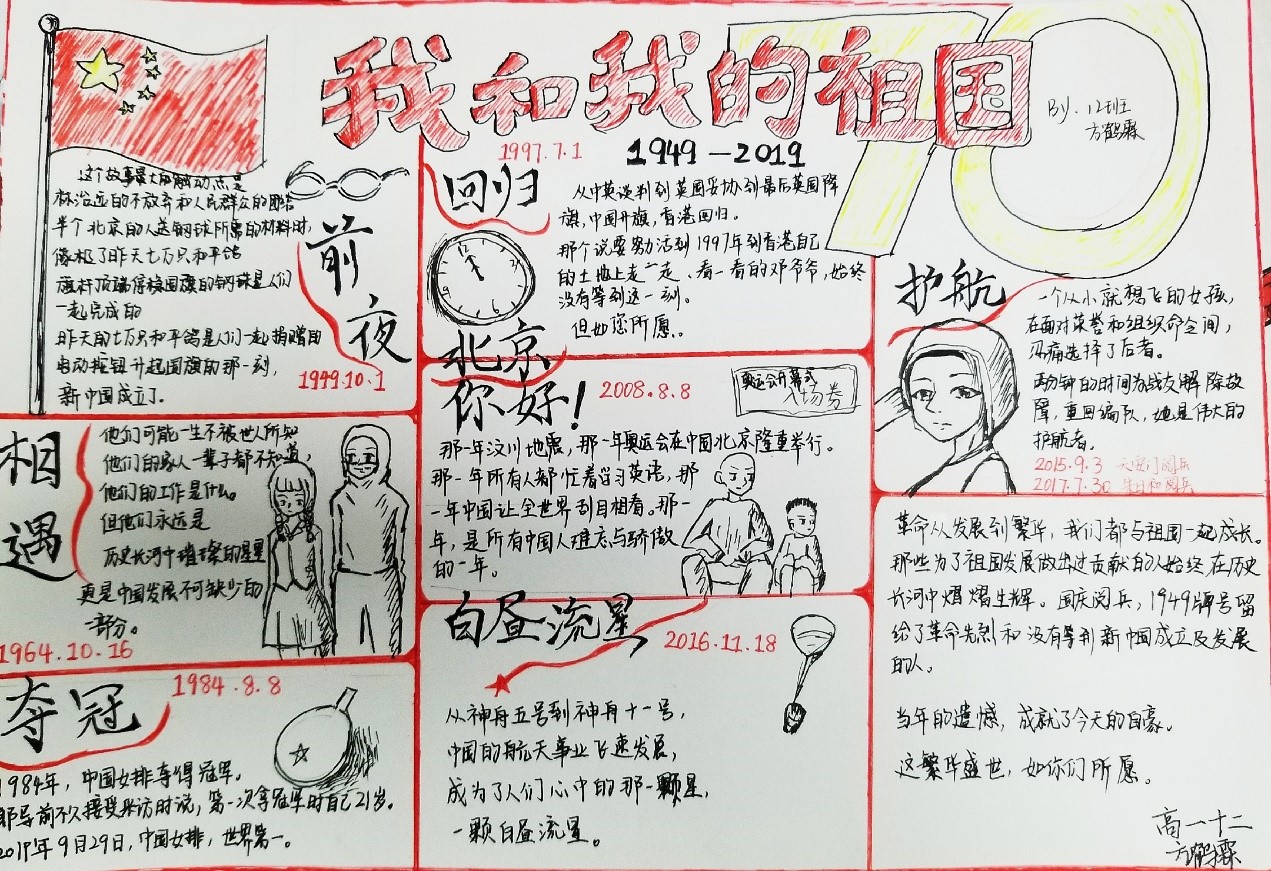 我和我的祖国
70
1949—2019
By:12班
方鹤霖
前夜
1949.10.1
这个故事最大的触动点是
林治远的不放弃和人民群众的团结
半个北京的人送钢球所需的材料时,
像极了昨天七万只和平鸽
旗杆顶端停挨国旗的钢球是人们
一起完成的
昨天的七万只和平鸽是人们一起捐赠的
电动按钮升起国旗的那一刻,
新中国成立了。
相遇
他们可能一生不被世人所知
他们的家人一辈子都不知道,
他们的工作是什么。
但他们永远是
历史长河中璀璨的星星
更是中国发展不可缺少的
一部分。
1964.10.16
夺冠
1984.8.8
1984年,中国女排夺得冠军。
郎导前不久接受采访时说,第一次拿冠军时自己21岁。
2019年9月29日,中国女排,世界第一。
1997.7.1
回归
从中英谈判到英国妥协到最后英国降
旗,中国升旗,香港回归。
那个说要努力活到1997年到香港自己
的土地上走一走、看一看的邓爷爷,始终
没有等到这一刻。
但如您所愿。
北京
你好!
2008.8.8
奥运会开幕式
入场券
那一年汶川地震,那一年奥运会在中国北京隆重举行。
那一年所有人都忙着学习英语,那
一年中国让全世界刮目相看。那一
年,是所有中国人难忘与骄傲
的一年。
白昼流星
2016.11.18
从神舟五号到神舟十一号,
中国的航天事业飞速发展,
成为了人们心中的那一颗星,
一颗白昼流星。
护航
一个从小就想飞的女孩,
在面对荣誉和组织命令间,
沉痛选择了后者。
两分钟的时间为战友解除故
障,重回编队,她是伟大的
护航者。
2015.9.3 天安门阅兵
2017.7.30 朱日和阅兵
革命从发展到繁华,我们都与祖国一起成长。
那些为了祖国发展做出过贡献的人始终在历史
长河中熠熠生辉。国庆阅兵,1949牌号留
给了革命先烈和没有等到新中国成立及发展
的人。
当年的遗憾,成就了今天的自豪。
这繁华盛世,如你们所愿。
高一十二
方鹤霖